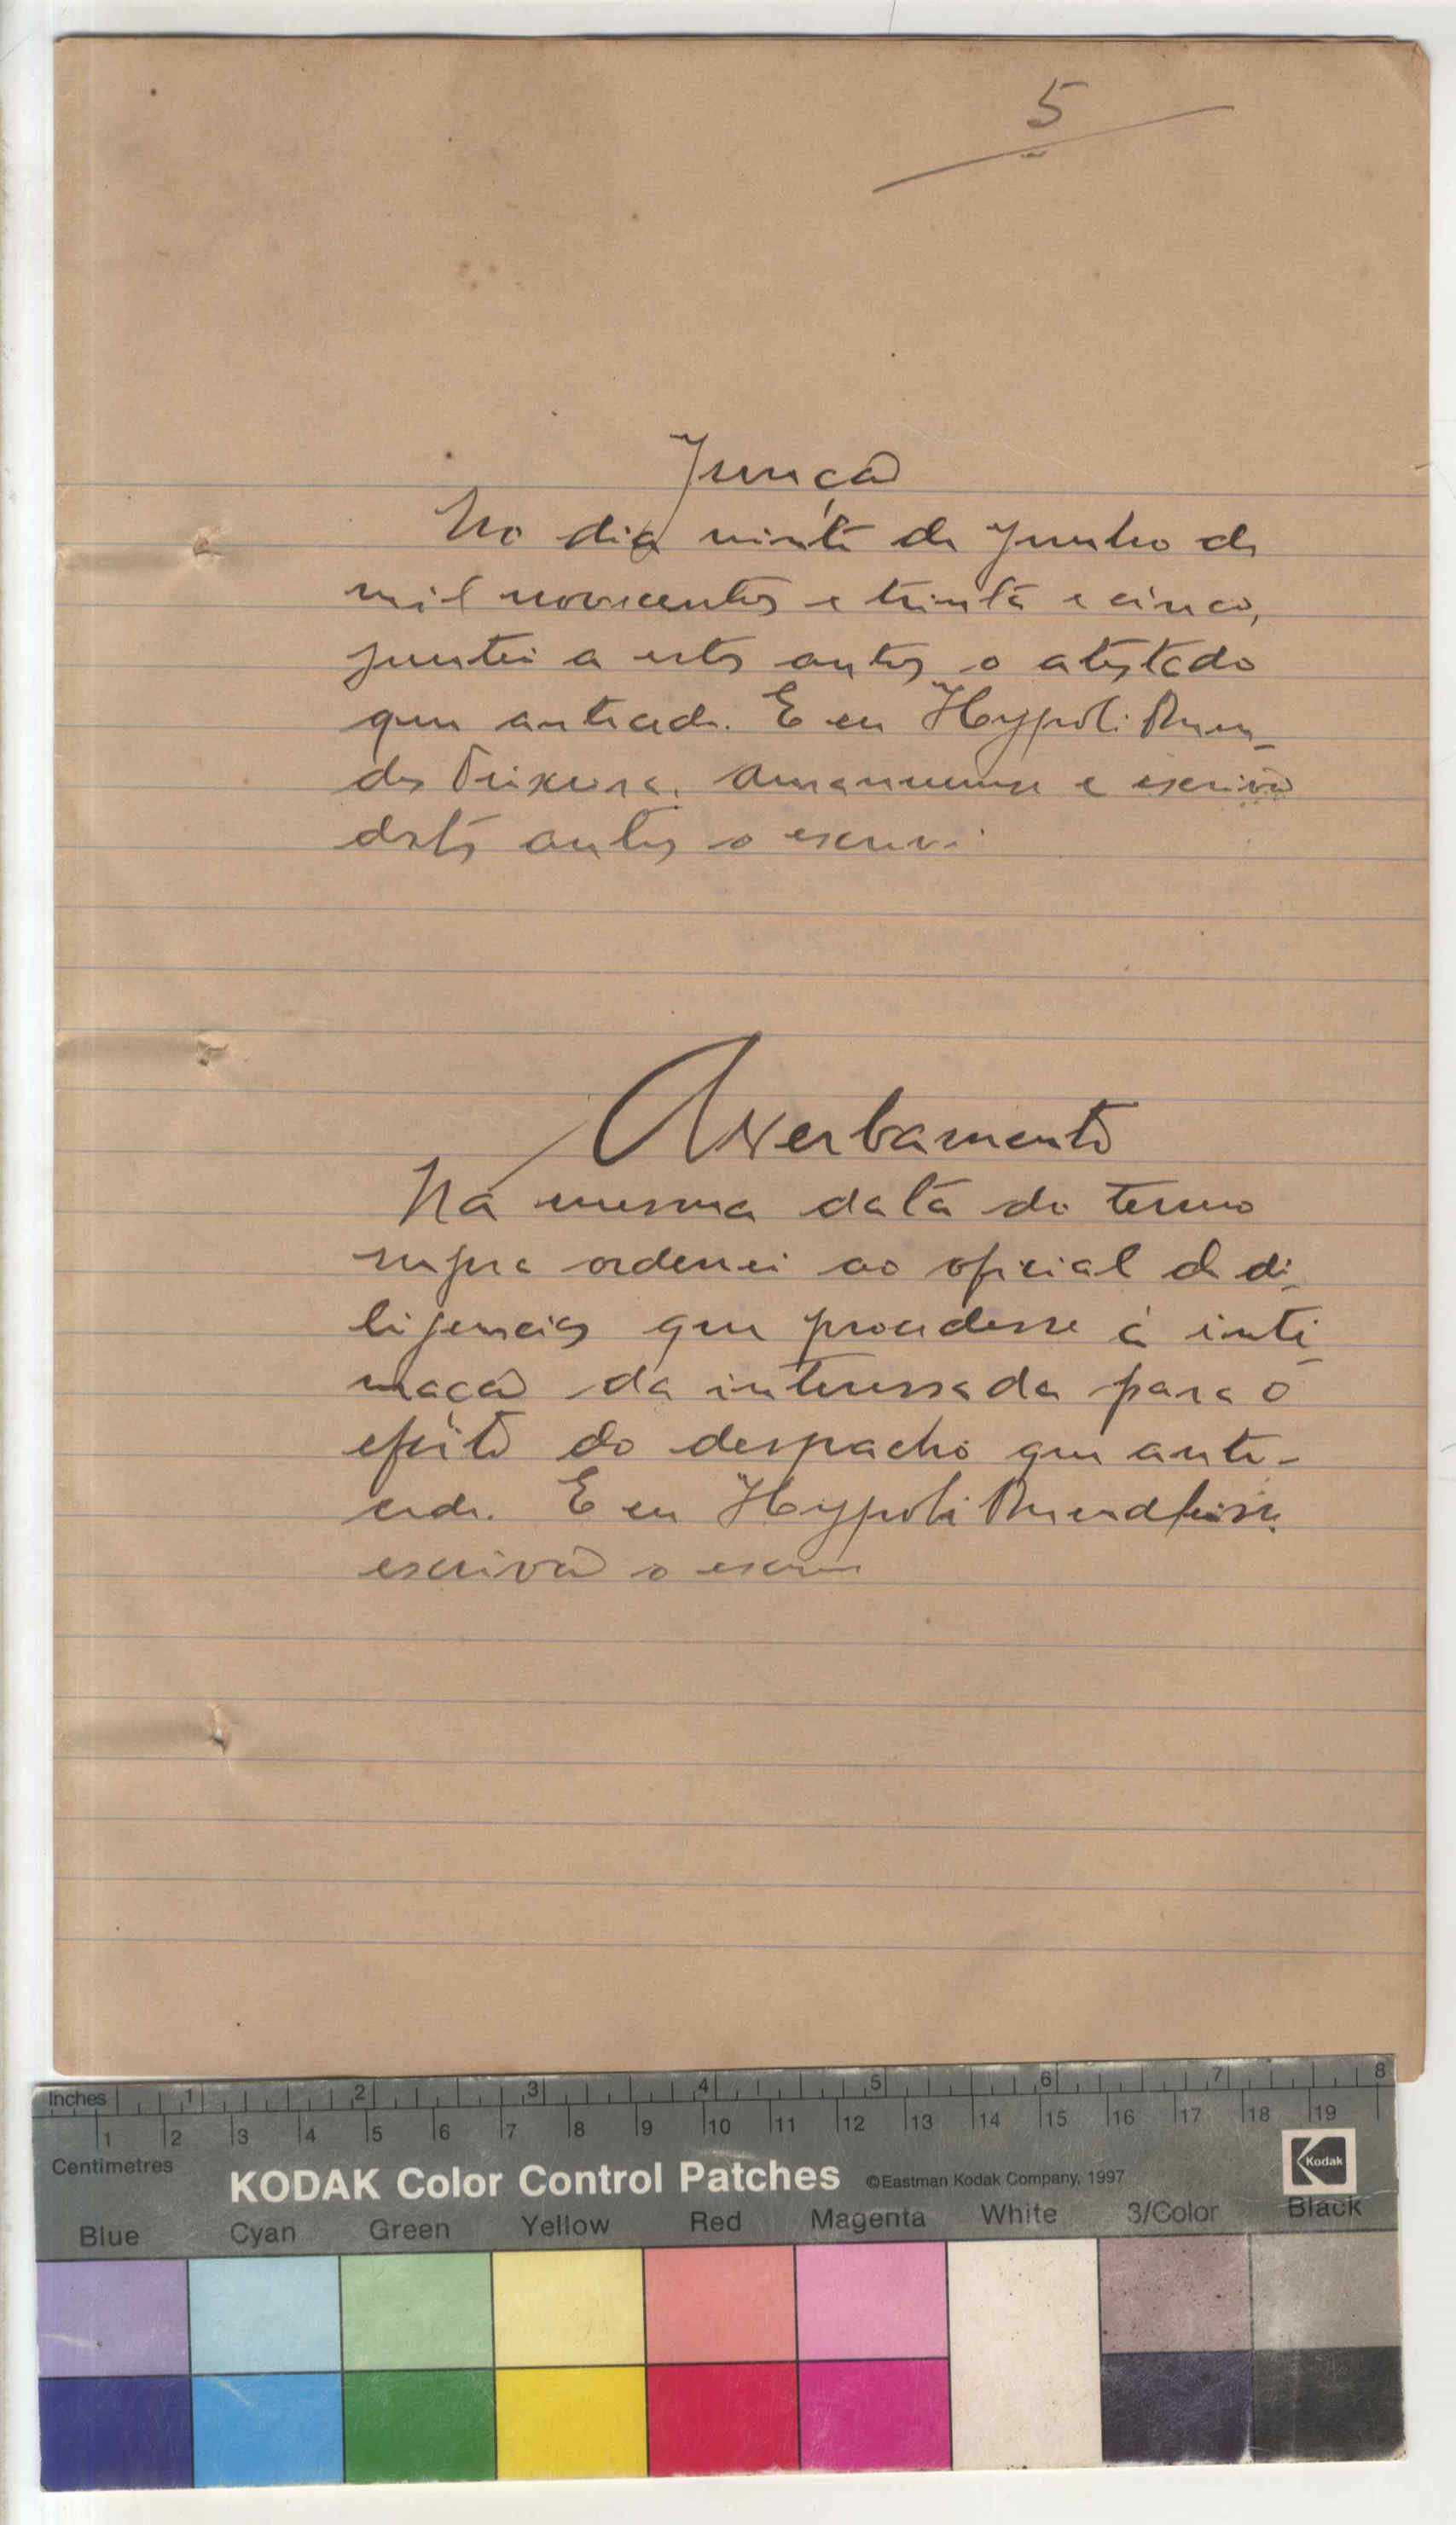 5
Junção
No dia vinte de Junho de
mil novecentos e trinta e cinco,
juntei a estes autos o atestado
que antecede. E eu Hypoli
des Teixeira, amanuense e escrivão
destes autos o escrevi
Averbamento
Na mesma data do termo
supra ordenei ao oficial de di-
ligencias que procedesse á inti
mação da interessada para o
efeito do despacho que ante-
cede. E eu Hypoli
escrivão o escrevi
Inches 1 2 3 4 5 6 7 8
1 2 3 4 5 6 7 8 9 10 11 12 13 14 15 16 17 18 19
Centimetres
KODAK Color Control Patches ©Eastman Kodak Company, 1997 Kodak
Blue Cyan Green Yellow Red Magenta White 3/Color Black